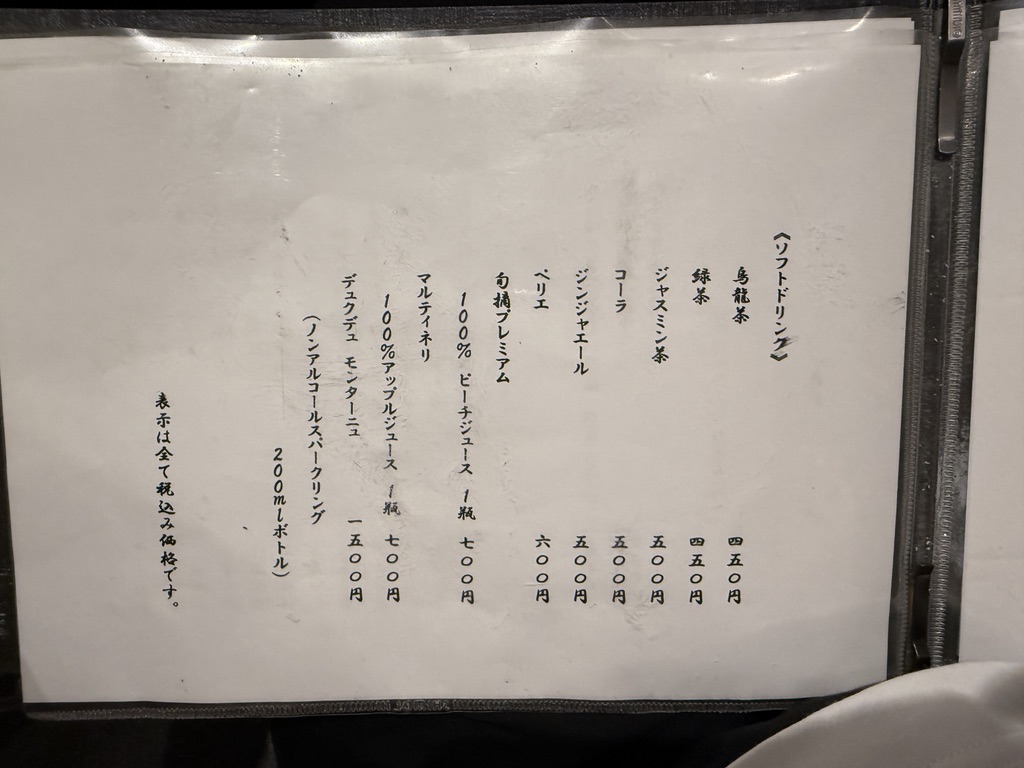 《ソフトドリンク》
烏龍茶 四五〇円
緑茶 四五〇円
ジャスミン茶 五〇〇円
コーラ 五〇〇円
ジンジャエール 五〇〇円
ペリエ 六〇〇円
旬摘プレミアム
100% ピーチジュース 1瓶 七〇〇円
マルティネリ
100%アップルジュース 1瓶 七〇〇円
デュクデュ モンターニュ 一五〇〇円
(ノンアルコールスパークリング
200mlボトル)
表示は全て税込み価格です。